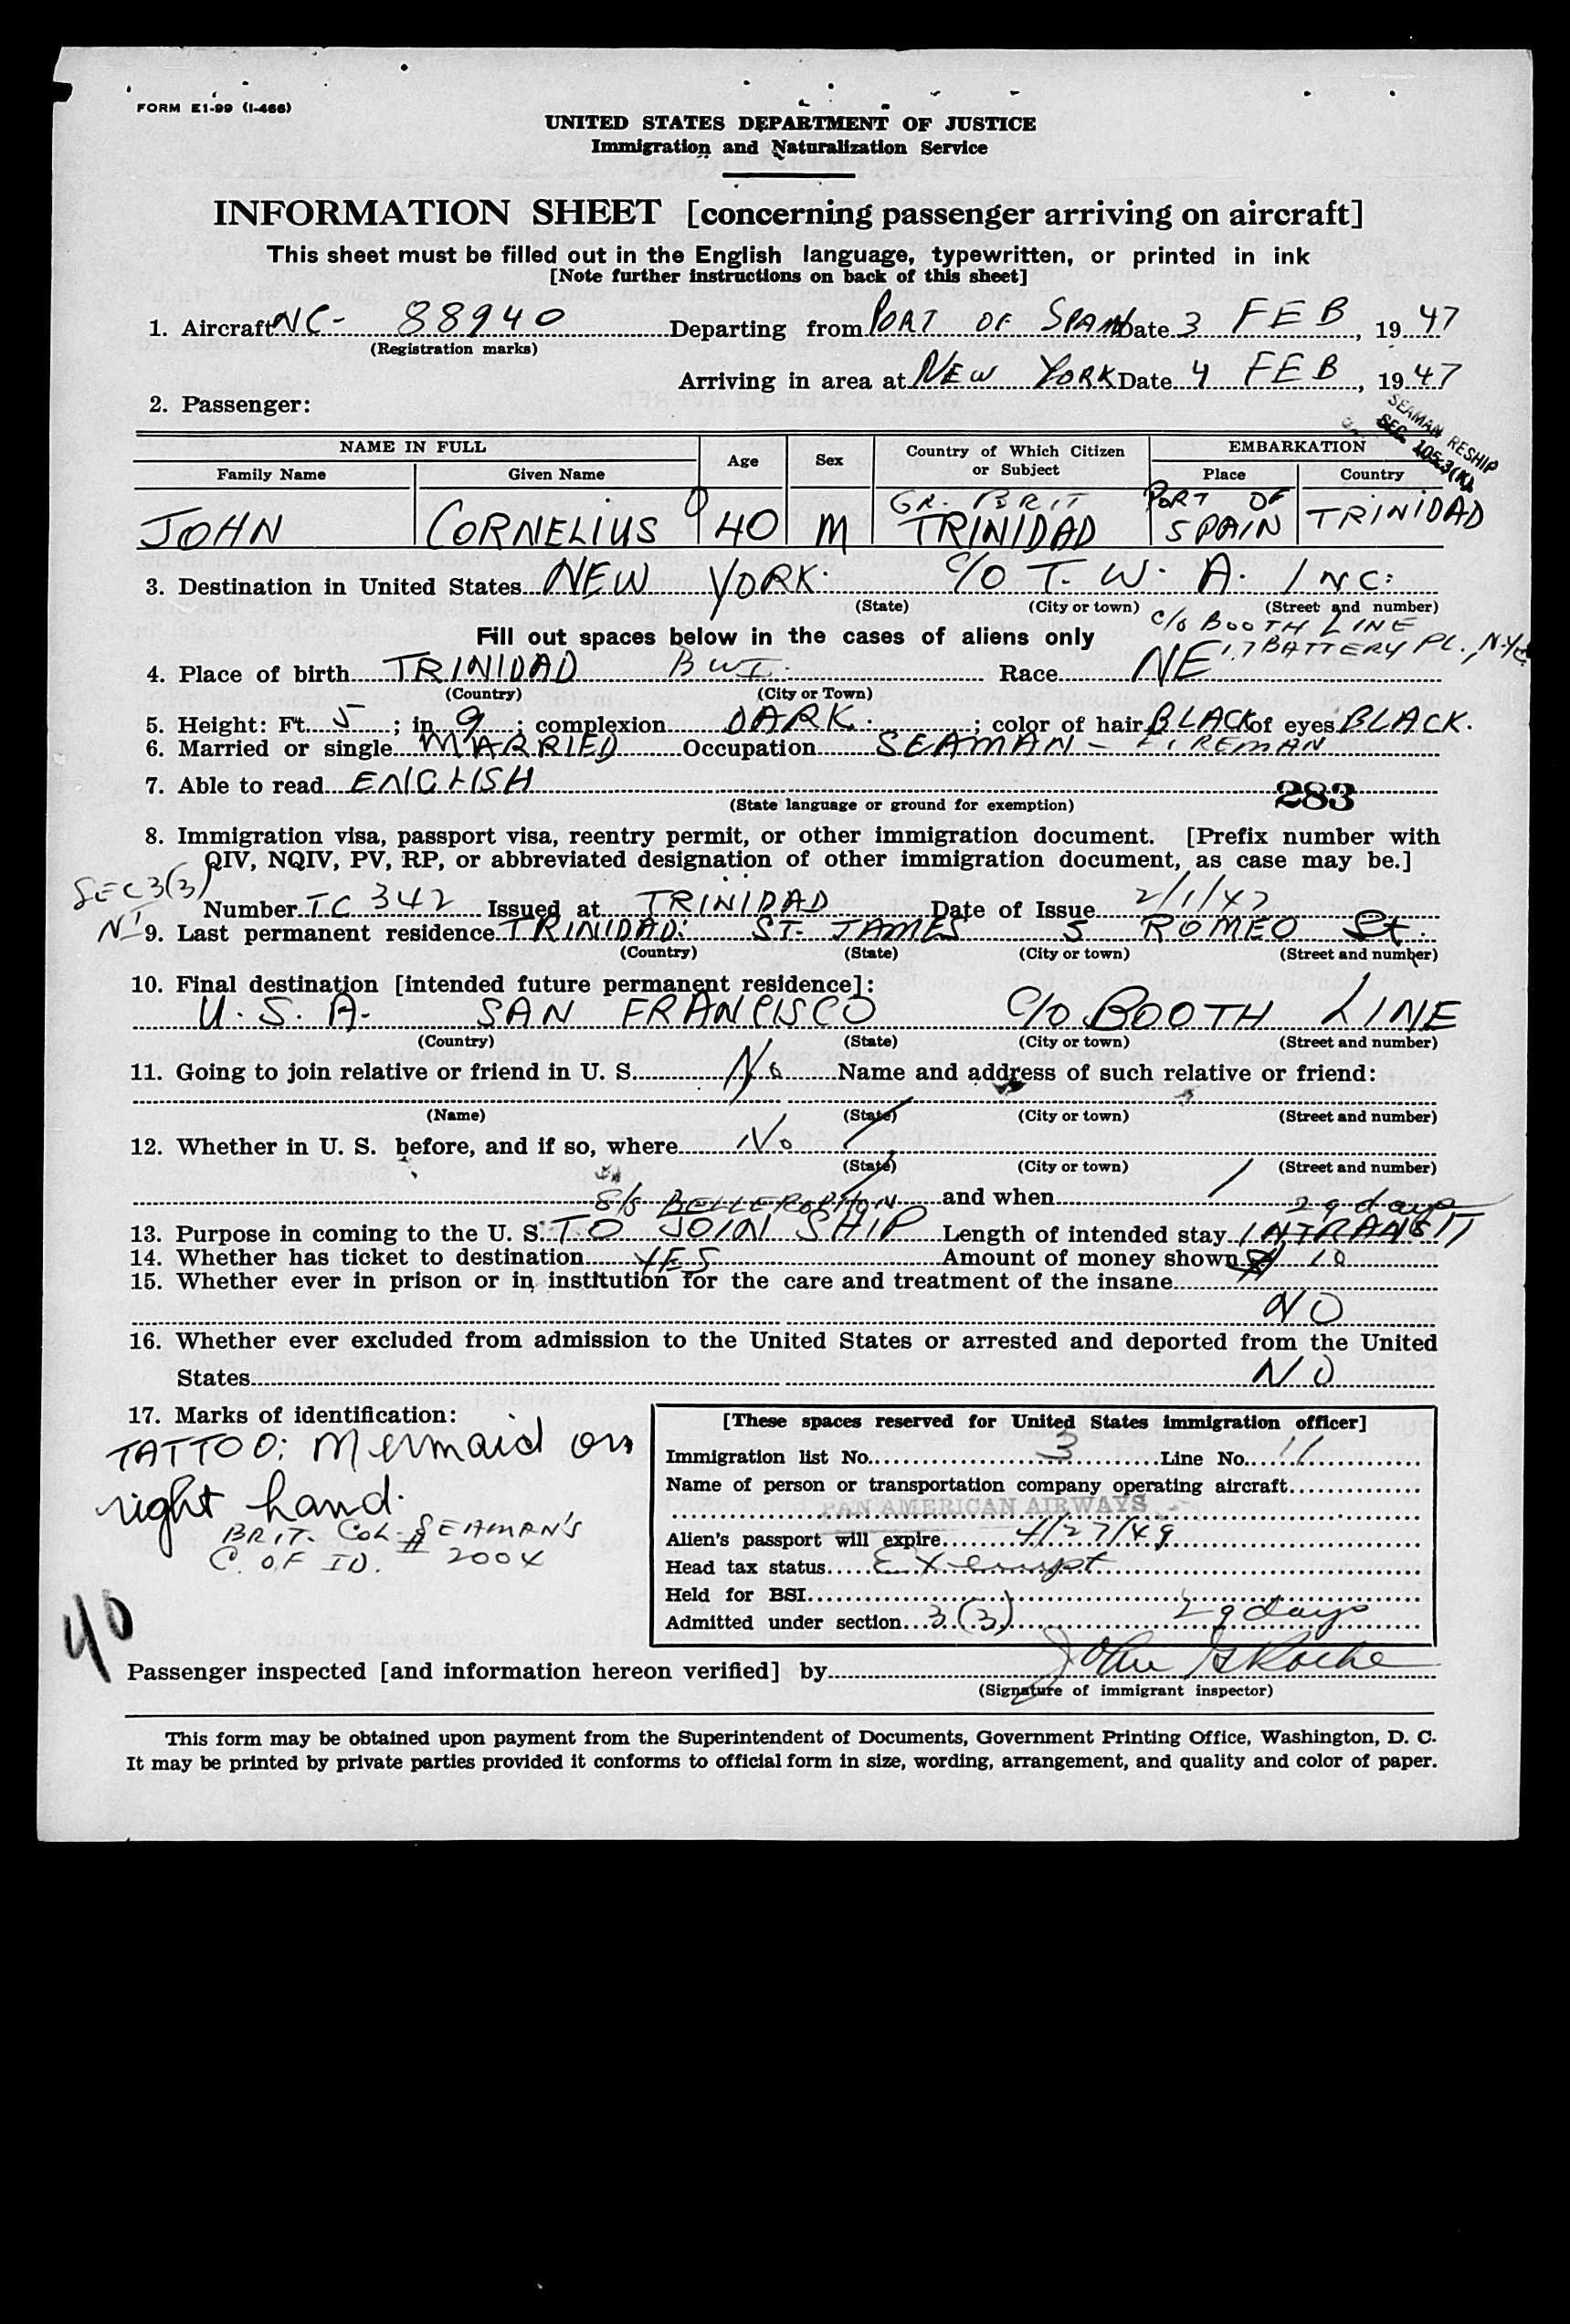 FORM E1-99 (I-466)
UNITED STATES DEPARTMENT OF JUSTICE
Immigration and Naturalization Service
INFORMATION SHEET [concerning passenger arriving on aircraft]
This sheet must be filled out in the English language, typewritten, or printed in ink
[Note further instructions on back of this sheet]
1. Aircraft NC- 88940 Departing from PORT OF SPAIN Date 3 FEB, 1947
(Registration marks)
Arriving in area at NEW YORK Date 4 FEB, 1947
2. Passenger:
SEAMAN RESHIP
SEC. 105.3(K)
NAME IN FULL Age Sex Country of Which Citizen or Subject EMBARKATION
Family Name Given Name Place Country
GR. BRIT PORT OF
JOHN CORNELIUS 40 M TRINIDAD SPAIN TRINIDAD
3. Destination in United States NEW YORK. C/O T. W. A. INC:
(State) (City or town) (Street and number)
C/O BOOTH LINE
Fill out spaces below in the cases of aliens only
17 BATTERY PL., N.Y.C.
4. Place of birth TRINIDAD BWI. Race NE
(Country) (City or Town)
5. Height: Ft. 5; in. 9; complexion DARK.; color of hair BLACK of eyes BLACK.
6. Married or single MARRIED Occupation SEAMAN - FIREMAN
7. Able to read ENGLISH
(State language or ground for exemption) 283
8. Immigration visa, passport visa, reentry permit, or other immigration document. [Prefix number with
QIV, NQIV, PV, RP, or abbreviated designation of other immigration document, as case may be.]
SEC 3(3)
Number TC 342 Issued at TRINIDAD Date of Issue 2/1/47
9. Last permanent residence TRINIDAD: ST. JAMES 5 ROMEO St.
(Country) (State) (City or town) (Street and number)
10. Final destination [intended future permanent residence]:
U. S. A. SAN FRANCISCO C/O BOOTH LINE
(Country) (State) (City or town) (Street and number)
11. Going to join relative or friend in U. S. No Name and address of such relative or friend:
(Name) (State) (City or town) (Street and number)
12. Whether in U. S. before, and if so, where No
(State) (City or town) (Street and number)
S/S BELLEROPHON and when 29 days
13. Purpose in coming to the U. S. TO JOIN SHIP Length of intended stay INTRANSIT
14. Whether has ticket to destination YES Amount of money shown $ 10
15. Whether ever in prison or in institution for the care and treatment of the insane
NO
16. Whether ever excluded from admission to the United States or arrested and deported from the United
States NO
17. Marks of identification:
TATTOO: Mermaid on
right hand.
BRIT. COL. SEAMAN'S
C. OF ID. # 2004
40
[These spaces reserved for United States immigration officer]
Immigration list No. 3 Line No. 11
Name of person or transportation company operating aircraft
PAN AMERICAN AIRWAYS
Alien's passport will expire 4/27/49
Head tax status Exempt
Held for BSI
Admitted under section 3(3) 29 days
Passenger inspected [and information hereon verified] by John Roche
(Signature of immigrant inspector)
This form may be obtained upon payment from the Superintendent of Documents, Government Printing Office, Washington, D. C.
It may be printed by private parties provided it conforms to official form in size, wording, arrangement, and quality and color of paper.